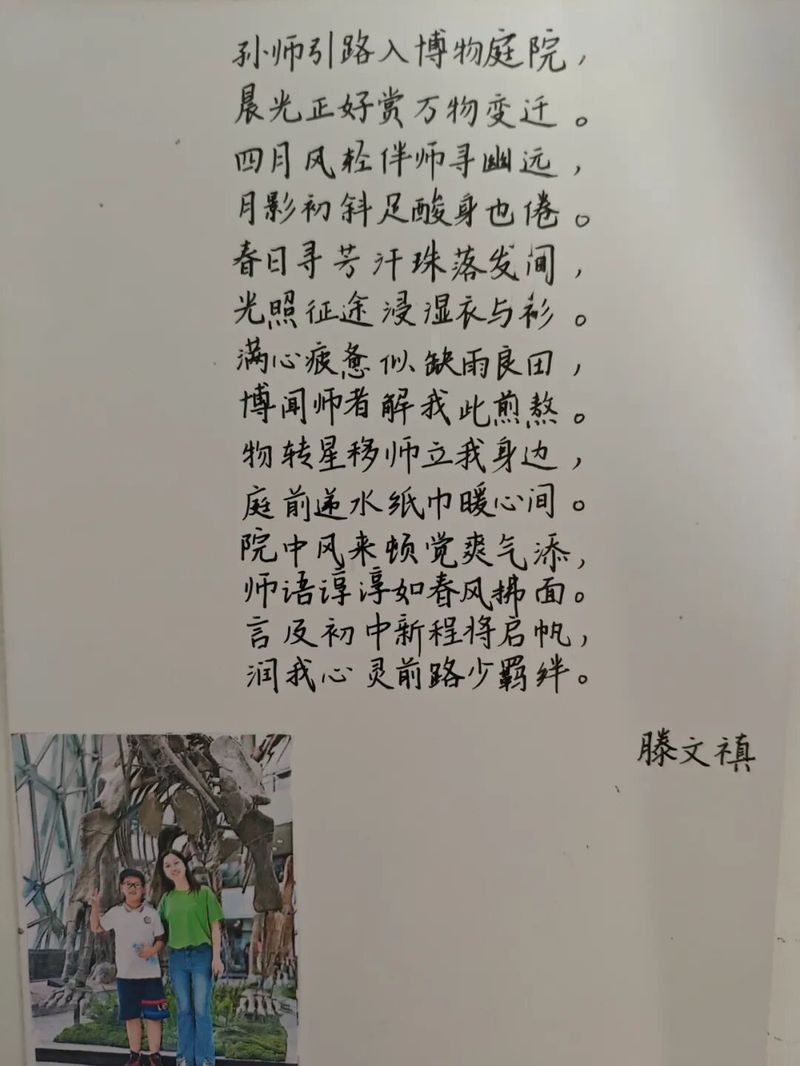 孙师引路入博物庭院，
晨光正好赏万物变迁。
四月风轻伴师寻幽远，
月影初斜足酸身也倦。
春日寻芳汗珠落发间，
光照征途浸湿衣与衫。
满心疲惫似缺雨良田，
博闻师者解我此煎熬。
物转星移师立我身边，
庭前递水纸巾暖心间。
院中风来顿觉爽气添，
师语谆谆如春风拂面。
言及初中新程将启帆，
润我心灵前路少羁绊。
滕文禛